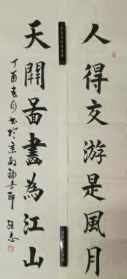 人得交游是風月
天開圖畫為江山
丁酉